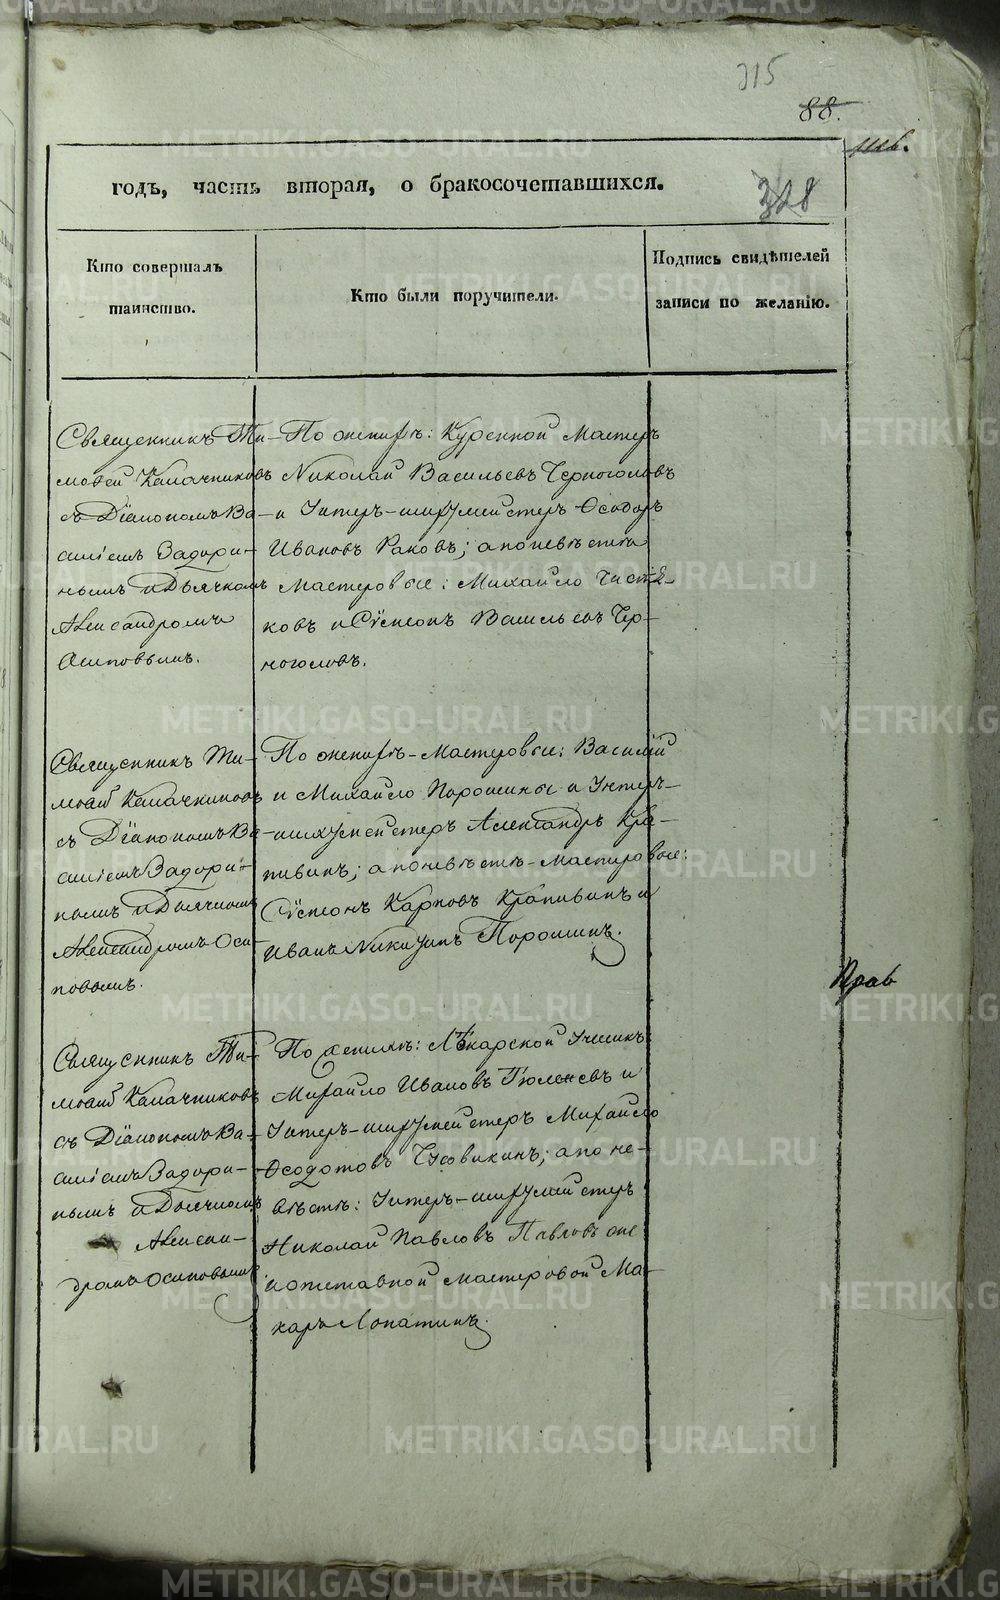 315
88.
328
годъ, часть вторая, о бракосочетавшихся.
Кто совершалъ
таинство.
Кто были поручители.
Подпись свидѣтелей
записи по желанію.
Священникъ Ти-
мофей Калачниковъ
съ Діакономъ Ва-
силіемъ Задори-
нымъ и Дьячкомъ
Александромъ
Осиповымъ.
По женихѣ: Куренной Мастеръ
Николай Васильевъ Черноголовъ
и Унтеръ-шихтмейстеръ Ѳеодоръ
Ивановъ Раковъ; а по невѣстѣ
Мастеровые: Михайло Чистя-
ковъ и Сѵмеонъ Васильевъ Чер-
ноголовъ.
Священникъ Ти-
мофей Калачниковъ
съ Діакономъ Ва-
силіемъ Задори-
нымъ и Дьячкомъ
Александромъ Оси-
повымъ.
По женихѣ-Мастеровые: Василій
и Михайло Порошины и Унтеръ-
шихтмейстеръ Александръ Кра-
пивинъ; а по невѣстѣ-Мастеровые:
Сѵмеонъ Карповъ Крапивинъ и
Иванъ Никитинъ Порошинъ.
Прав
Священникъ Ти-
мофей Калачниковъ
съ Діакономъ Ва-
силіемъ Задори-
нымъ и Дьячкомъ
Алексан-
дромъ Осиповымъ
По женихѣ: Лѣкарской Ученикъ
Михайло Ивановъ Тюленевъ и
Унтеръ-шихтмейстеръ Михайло
Ѳеодотовъ Чусовикинъ; а по не-
вѣстѣ: Унтеръ-шихтмейстеръ
Николай Павловъ Павловъ же
и отставной мастеровой Ма-
каръ Лопатинъ.
METRIKI.GASO-URAL.RU